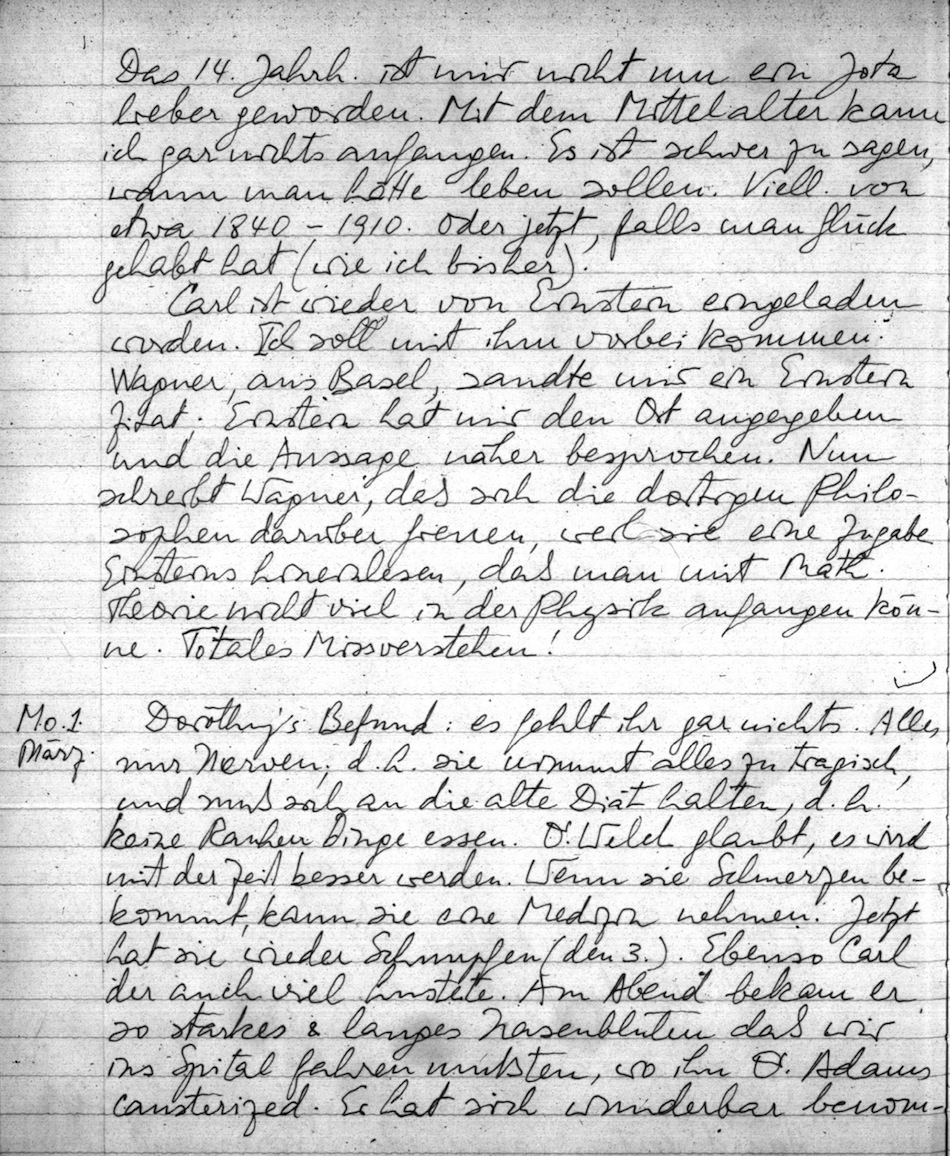 Das 14. Jahrh. ist mir nicht um ein Jota
lieber geworden. Mit dem Mittelalter kann
ich gar nichts anfangen. Es ist schwer zu sagen,
wann man hätte leben sollen. Viell. von
etwa 1840 - 1910. Oder jetzt, falls man Glück
gehabt hat (wie ich bisher).
Carl ist wieder von Einstein eingeladen
worden. Ich soll mit ihm vorbei kommen.
Wagner, aus Basel, sandte mir ein Einstein
Zitat; Einstein hat mir den Ort angegeben
und die Aussage näher besprochen. Nun
schreibt Wagner, daß sich die dortigen Philo-
sophen darüber freuen, weil sie eine Zugabe
Einsteins hineinlesen, daß man mit Math.
Theorie nicht viel in der Physik anfangen kön-
ne. Totales Missverstehen!
Mo. 1.
März.
Dorothy's Befund: es fehlt ihr gar nichts. Alles
nur Nerven, d.h. sie nimmt alles zu tragisch,
und muß sich an die alte Diät halten, d.h.
keine Rauhen Dinge essen. D. Welch glaubt, es wird
mit der Zeit besser werden. Wenn sie Schmerzen be-
kommt, kann sie eine Medizin nehmen. Jetzt
hat sie wieder Schnupfen (den 3.). Ebenso Carl
der auch viel hustete. Am Abend bekam er
so starkes & langes Nasenbluten daß wir
ins Spital fahren mußten, wo ihn D. Adams
causterized. Er hat sich wunderbar benom-